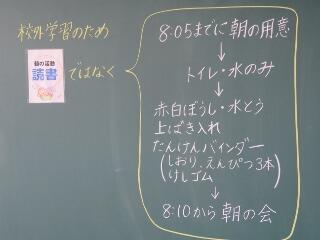 校外学習のため
朝の活動
読書
ではなく
8:05までに朝の用意
↓
トイレ・水のみ
↓
赤白ぼうし・水とう
上ばき入れ
たんけんバインダー
(しおり、えんぴつ3本
けしゴム)
↓
8:10から朝の会